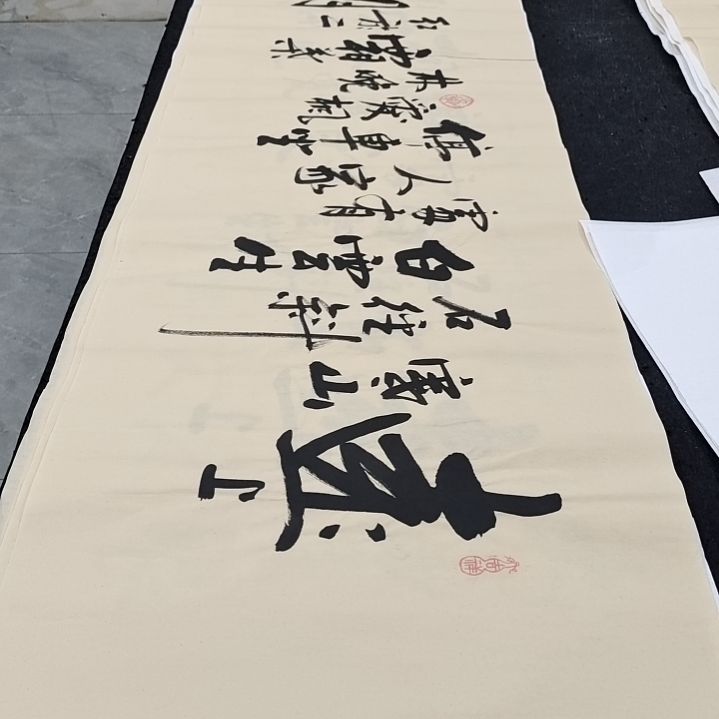 遠上
寒山
石径斜
白雲生
處有
人家
停車坐
愛楓
林晚
霜葉
红於二
月